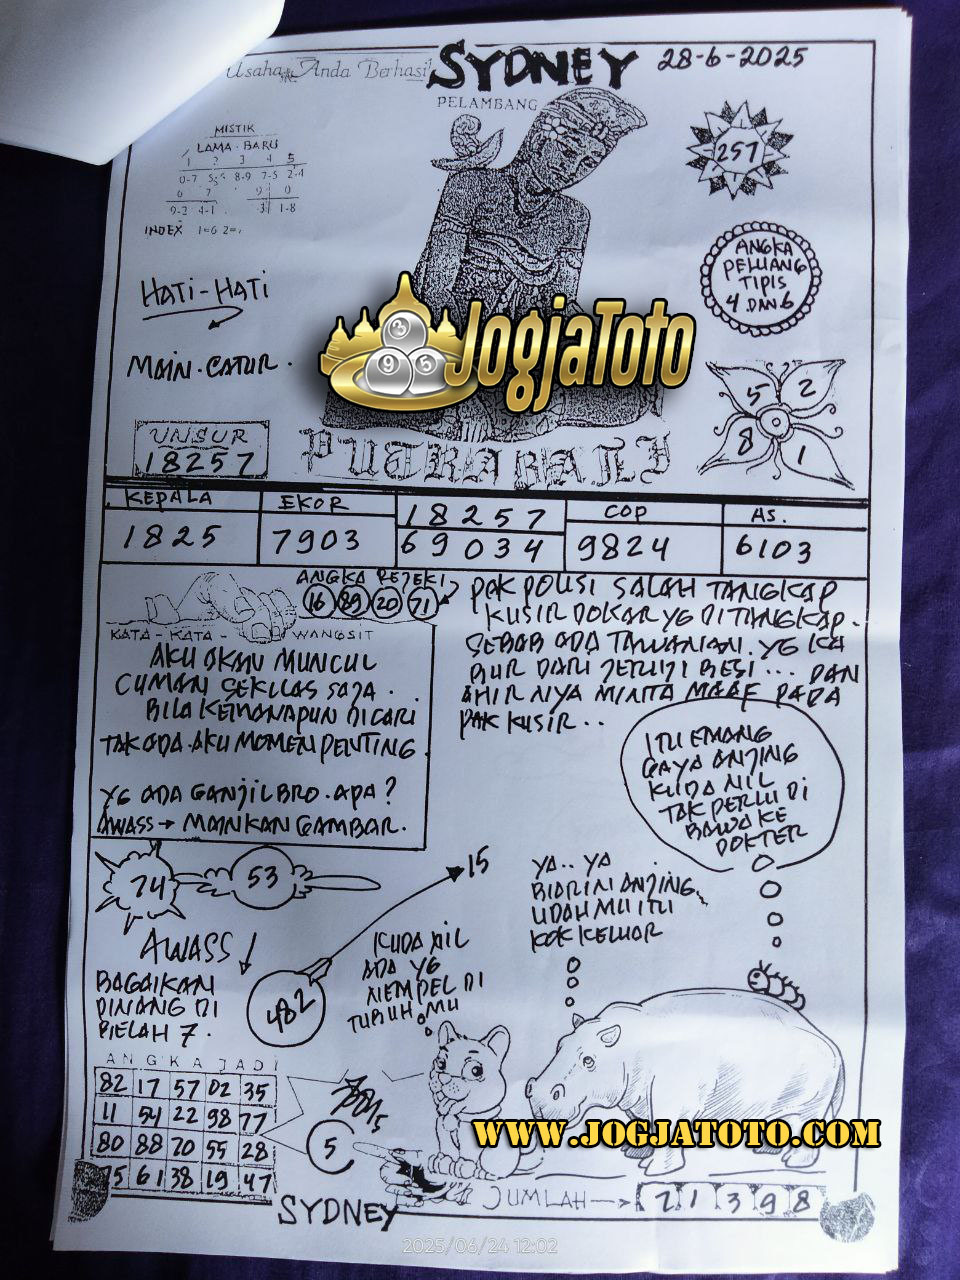 Usaha Anda Berhasil
SYDNEY
28-6-2025
PELAMBANG
MISTIK
LAMA - BARU
1 2 3 4 5
0-7 8-9 7-5 2-4
6 7 9 0
9-2 4-1 3 1-8
INDEX 1=6 2=7
257
ANGKA
PELUANG
TIPIS
4 DAN 6
HATI-HATI
MAIN. CATUR.
JogjaToto
3
9 5
5 2
8 1
UNSUR
18257
PUTRA BALI
KEPALA EKOR 18257 COP AS.
1825 7903 69034 9824 6103
ANGKA REJEKI
16 89 20 71
KATA - KATA - WANGSIT
AKU AKAN MUNCUL
CUMAN SEKILAS SAJA.
BILA KEMANAPUN DICARI
TAK ADA AKU MOMEN PENTING
YG ADA GANJIL BRO. APA?
AWASS → MAINKAN GAMBAR.
PAK POLISI SALAH TANGKAP
KUSIR DOKAR YG DITANGKAP.
SEBAB ADA TAWANAN. YG KA
BUR DARI JERUJI BESI... DAN
AHIRNYA MINTA MAAF PADA
PAK KUSIR..
ITU EMANG
GAYA ANJING
KUDA NIL
TAK PERLU DI
BAWA KE
DOKTER
74
53
15
YA.. YA
BIARIN ANJING,
UDAH MU ITU
KOK KELUAR
AWASS
BAGAIKAN
PINANG DI
BELAH 7.
482
KUDA NIL
ADA YG
NEMPEL DI
TUBUH MU
ANGKA JADI
82 17 57 02 35
11 54 22 98 77
80 88 70 55 28
61 38 19 47
5
WWW.JOGJATOTO.COM
JUMLAH → 7 1 3 9 8
SYDNEY
2025/06/24 12:02